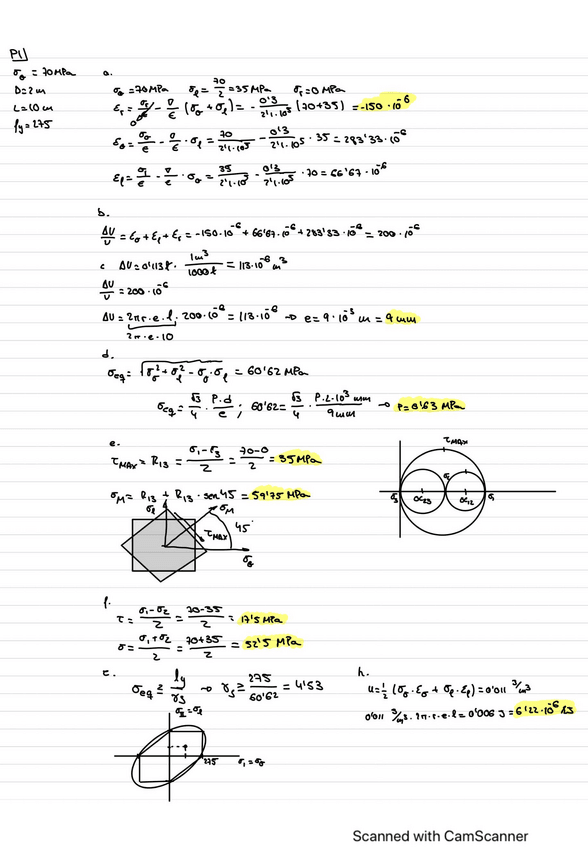 P1
σθ = 70MPa
D=2m
L=10m
fy=275
a.
σθ=70MPa σl=70/2=35MPa σr=0MPa
εr=σr/e - ν/e (σθ+σl)= - 0'3/2'1·10⁵ (70+35) = -150·10⁻⁶
0
εθ=σθ/e - ν/e · σl = 70/2'1·10⁵ - 0'3/2'1·10⁵ · 35 = 283'33·10⁻⁶
εl=σl/e - ν/e · σθ = 35/2'1·10⁵ - 0'3/2'1·10⁵ · 70 = 66'67·10⁻⁶
b.
ΔU/U = εθ+εl+εr = -150·10⁻⁶+66'67·10⁻⁶+283'33·10⁻⁶ = 200·10⁻⁶
c ΔU=0'113ℓ · 1m³/1000ℓ = 113·10⁻⁶ m³
ΔU/U = 200·10⁻⁶
ΔU = 2πr·e·l · 200·10⁻⁶ = 113·10⁻⁶ → e = 9·10⁻³ m = 9mm
2π·e·10
d.
σeq = √σθ²+σl²-σθ·σl = 60'62MPa
σeq = √3/4 · P·d/e ; 60'62 = √3/4 · P·2·10³ mm/9mm → P=0'63 MPa
e.
τMAX = R13 = σ1-σ3/2 = 70-0/2 = 35MPa
σM = R13 + R13 · sen45 = 59'75MPa
σl
σM
τMAX
45°
σθ
τMAX
σ3
OC23
σ2
OC12
σ1
f.
τ = σ1-σ2/2 = 70-35/2 = 17'5 MPa
σ = σ1+σ2/2 = 70+35/2 = 52'5 MPa
σeq ≥ fy/γs → γs ≥ 275/60'62 = 4'53
σ2=σl
275
σ1=σθ
h.
u=½ (σθ·εθ + σl·εl)=0'011 J/m³
0'011 J/m³ · 2π·r·e·l = 0'006 J = 6'22·10⁻⁶ kJ
Scanned with CamScanner